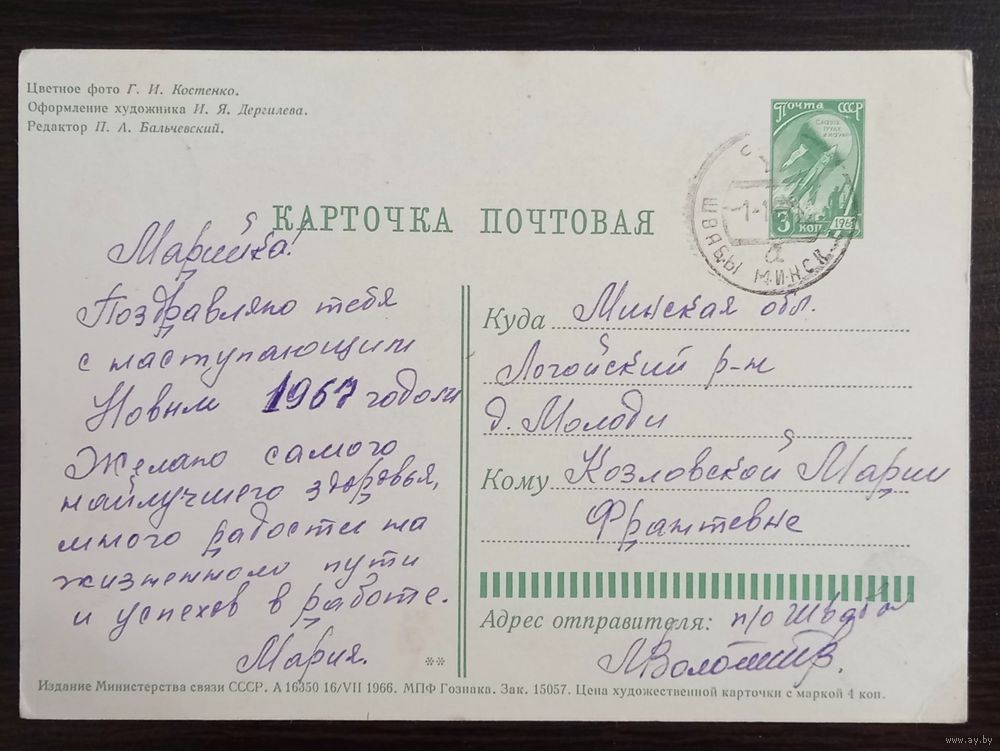 Цветное фото Г. И. Костенко.
Оформление художника И. Я. Дергилева.
Редактор П. А. Бальчевский.
Почта СССР
СЛАВА
ТРУДУ
И НАУКЕ
3 КОП
1961
МИНСК
КАРТОЧКА ПОЧТОВАЯ
Марийка!
Поздравляю тебя
с наступающим
Новым 1967 годом
Желаю самого
наилучшего здоровья,
много радости на
жизненном пути
и успехов в работе.
Мария.
**
Куда Минская обл.
Логойский р-н
д. Молоди
Кому Козловской Марии
Франтевне
Адрес отправителя: п/о Швабы
Издание Министерства связи СССР. А 16350 16/VII 1966. МПФ Гознака. Зак. 15057. Цена художественной карточки с маркой 4 коп.
www.ay.by